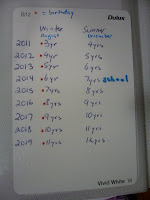 Dulux
• = birthday
Winter Summer
August December
2011 • 3yr 4yrs
2012 • 4yr 5yrs
2013 • 5yr 6yrs
2014 • 6yr 7yrs school
2015 • 7yrs 8yrs
2016 • 8yrs 9yrs
2017 • 9yrs 10yrs
2018 • 10yrs 11yrs
2019 • 11yrs 12yrs
Vivid White